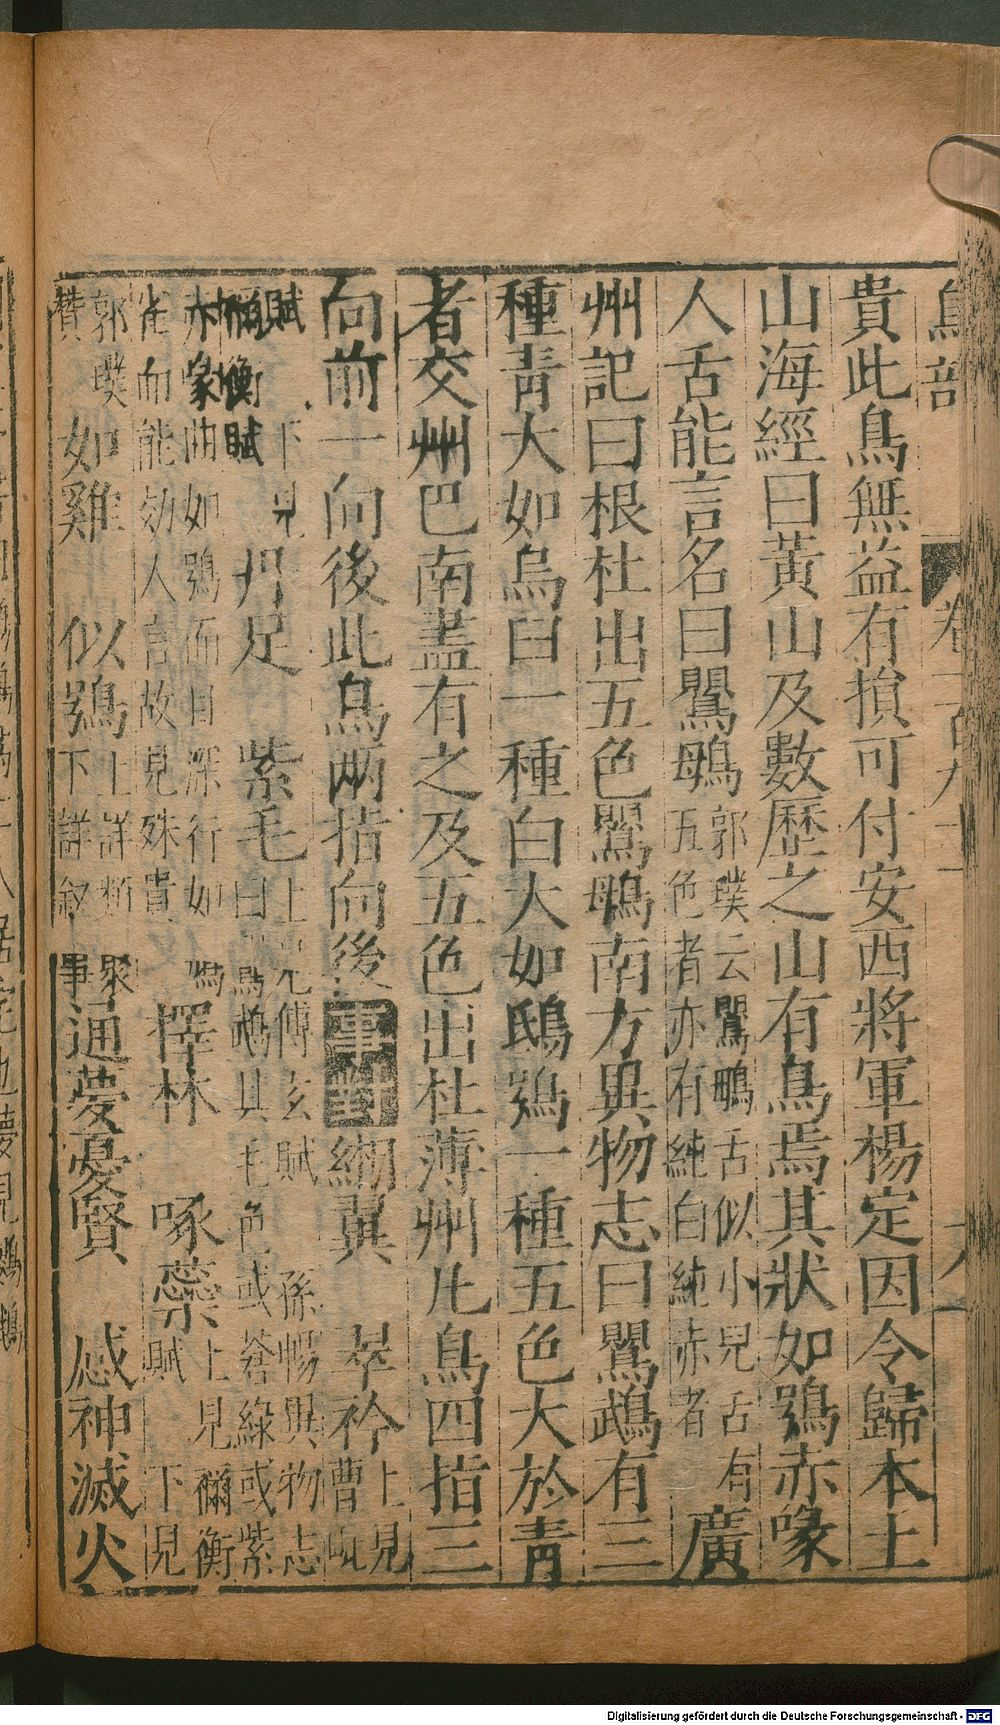 鳥部 卷一百九十一
貴此鳥無益有損可付安西將軍楊定因令歸本土
山海經曰黃山及數歷之山有鳥焉其狀如鴞赤喙
人舌能言名曰鸚䳇郭璞云鸚䳇舌似小兒舌有五色者亦有純白純赤者 廣
州記曰根杜出五色鸚䳇南方異物志曰鸚鵡有三
種青大如烏臼一種白大如鴟鴞一種五色大於青
者交州巴南盡有之及五色出杜薄州凡鳥四指三
向前一向後此鳥兩指向後 事對 緗翼 翠衿上見曹毗
賦下見禰衡賦 丹足 紫毛上見傅玄賦 孫暢異物志曰 鸚鵡其毛色或蒼綠或紫
赤喙曲如鴞而目深行如雀而能効人言故見殊貴 擇林 啄蘂上見禰衡賦 下見
郭璞贊 如雞 似鴞上詳類聚下詳敘事 通夢憂賢 感神滅火
Digitalisierung gefördert durch die Deutsche Forschungsgemeinschaft - DFG